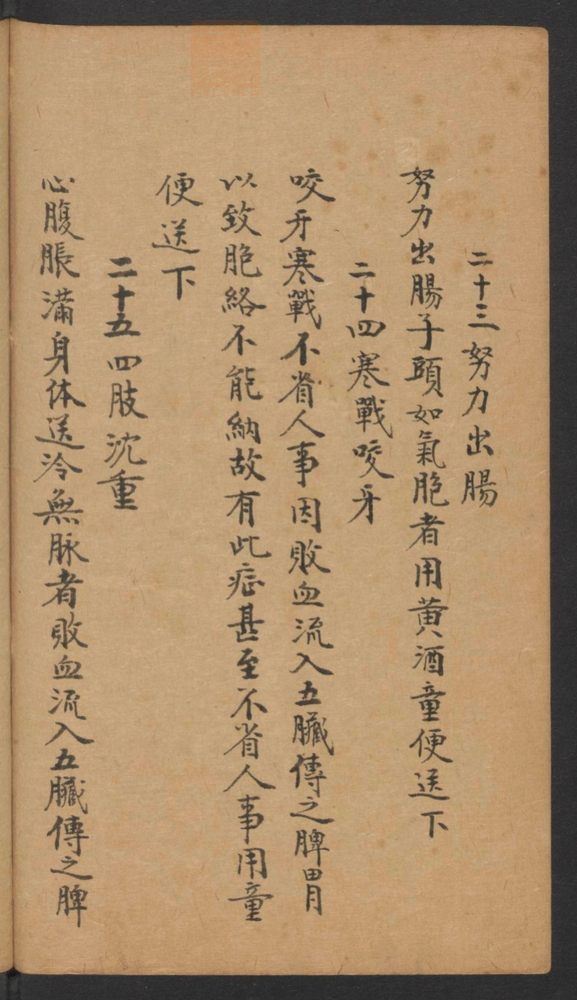 二十三努力出腸
努力出腸子頭如氣脃者用黄酒童便送下
二十四寒戰咬牙
咬牙寒戰不省人事因敗血流入五臟傳之脾胃
以致脃絡不能納故有此症甚至不省人事用童
便送下
二十五四肢沈重
心腹脹滿身体送冷無脉者敗血流入五臟傳之脾